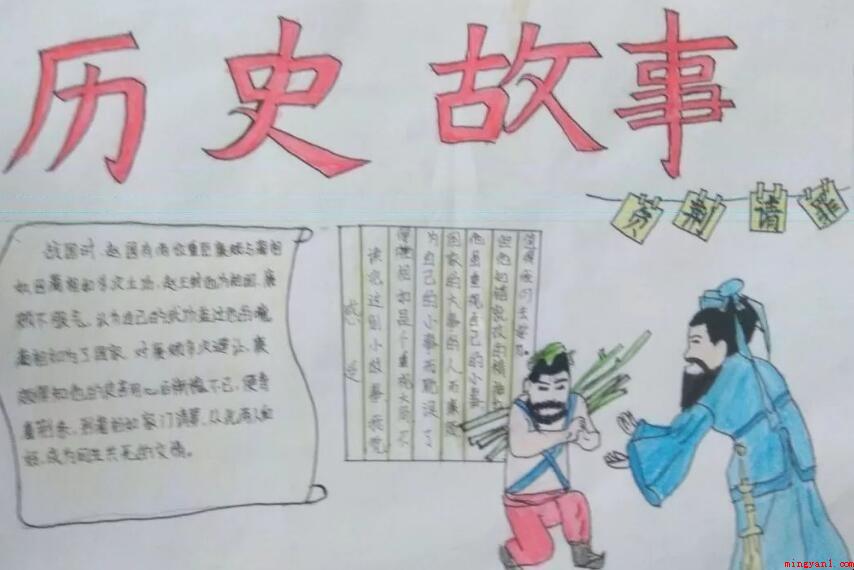 历史故事
负荆请罪
战国时,赵国有两位重臣廉颇与蔺相
如因蔺相如多次立功,赵王封他为相国,廉
颇不服气,认为自己的战功盖过他的
蔺相如为了国家,对廉颇多次避让,廉
颇得知他的良苦用心后惭愧不已,便背
着荆条,到蔺相如家门请罪,从此两人和
好,成为同生共死的交情。
感受
读完这则小故事,我觉
得蔺相如是个重视大局不
为自己的小事而耽误了
国家的大事的人而廉颇
他虽重视自己的小事
但他知错能改的精神
值得我们去学习。
mingyan1.com